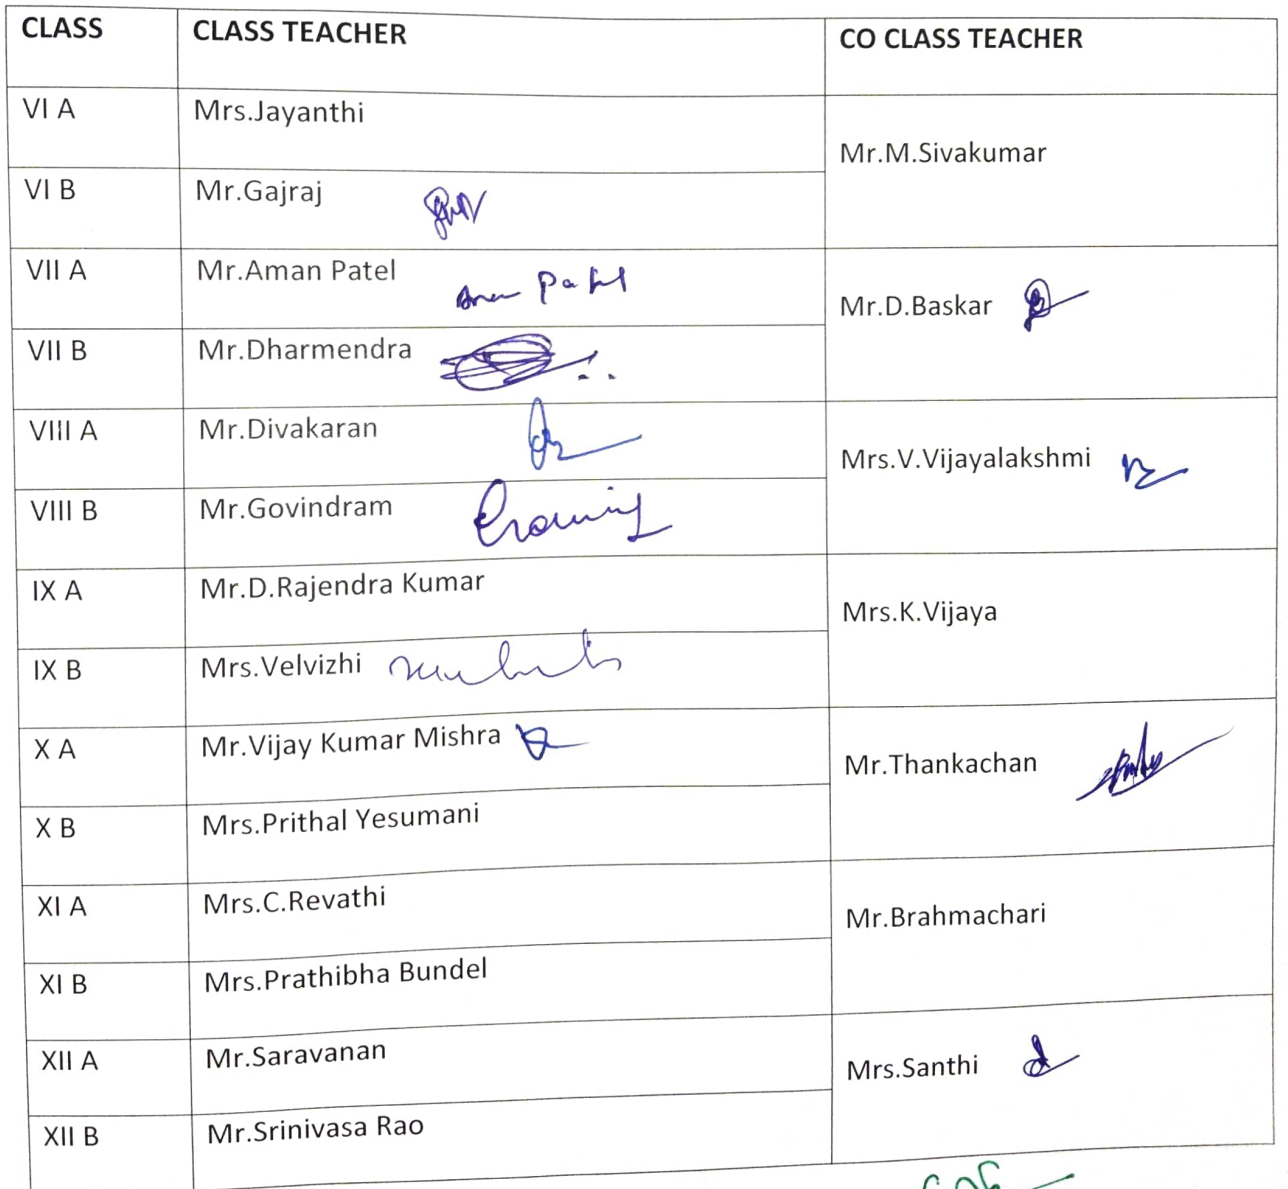 CLASS CLASS TEACHER CO CLASS TEACHER
VI A Mrs.Jayanthi
Mr.M.Sivakumar
VI B Mr.Gajraj
VII A Mr.Aman Patel
Patel
Mr.D.Baskar
VII B Mr.Dharmendra
VIII A Mr.Divakaran
Mrs.V.Vijayalakshmi
VIII B Mr.Govindram
IX A Mr.D.Rajendra Kumar
Mrs.K.Vijaya
IX B Mrs.Velvizhi
X A Mr.Vijay Kumar Mishra
Mr.Thankachan
X B Mrs.Prithal Yesumani
XI A Mrs.C.Revathi
Mr.Brahmachari
XI B Mrs.Prathibha Bundel
XII A Mr.Saravanan
Mrs.Santhi
XII B Mr.Srinivasa Rao